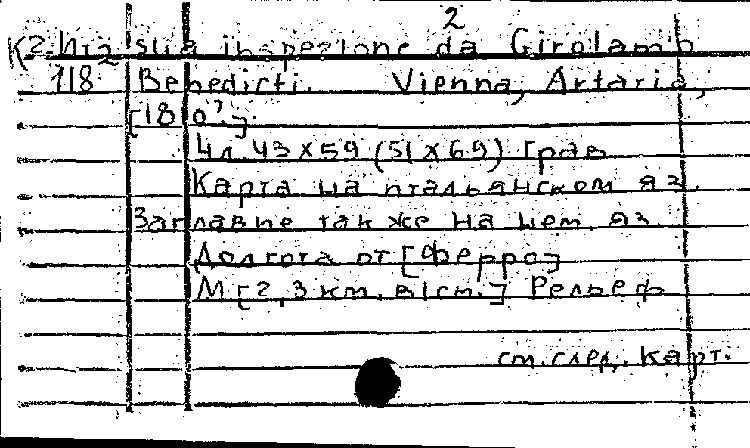 2
К2-Ит2 sua inspezione da Girolamo
118 Benedicti. Vienna, Artaria,
[1810?].
4 л. 43×59 (51×69) Грав
Карта на итальянском яз.
Заглавие также на нем. яз
Долгота от [Ферро]
М [2,3 км. в 1 см.] Рельеф
см. след. карт.